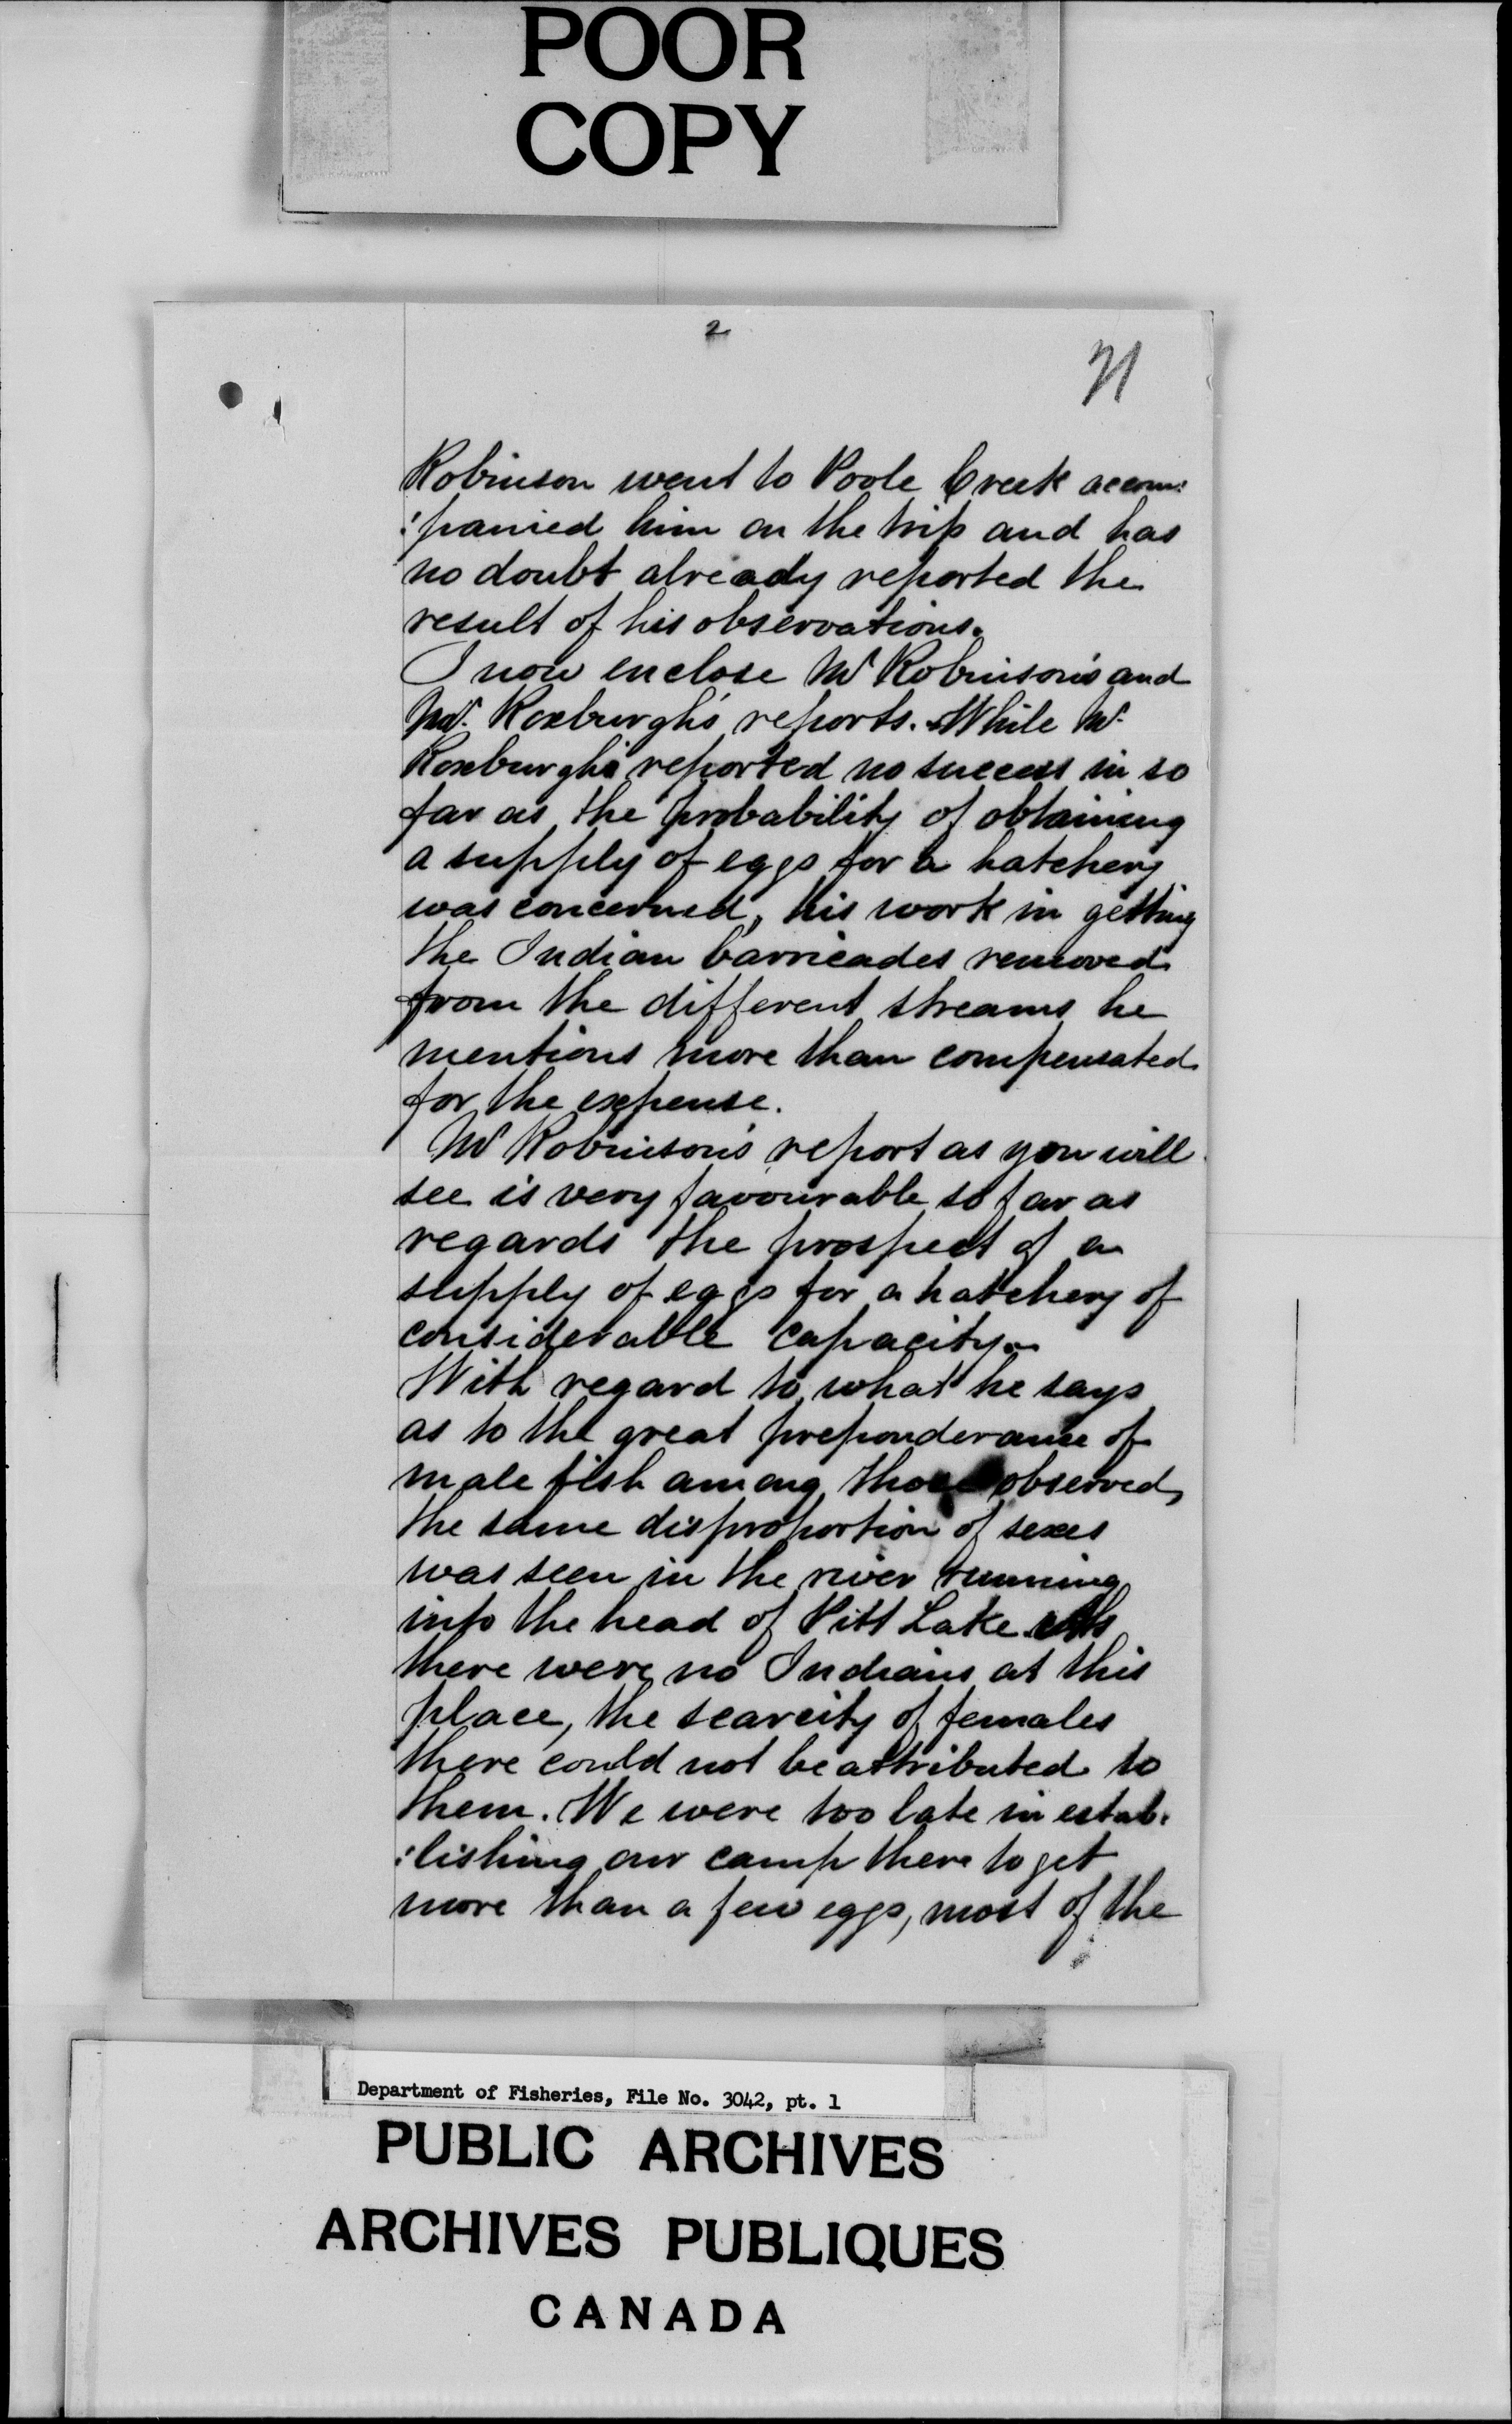 POOR
COPY
2
71
Robinson went to Poole Creek accom:
:panied him on the trip and has
no doubt already reported the
result of his observations.
I now enclose Mr Robinson's and
Mr. Roxburgh's reports. While Mr.
Roxburgh's reported no success in so
far as the probability of obtaining
a supply of eggs for a hatchery
was concerned, his work in getting
the Indian barricades removed
from the different streams he
mentions more than compensated
for the expense.
Mr Robinson's report as you will
see is very favourable so far as
regards the prospect of a
supply of eggs for a hatchery of
considerable capacity.
With regard to what he says
as to the great preponderance of
male fish among those observed,
the same disproportion of sexes
was seen in the river running
into the head of Pitt Lake. As
there were no Indians at this
place, the scarcity of females
there could not be attributed to
them. We were too late in estab:
:lishing our camp there to get
more than a few eggs, most of the
Department of Fisheries, File No. 3042, pt. 1
PUBLIC ARCHIVES
ARCHIVES PUBLIQUES
CANADA